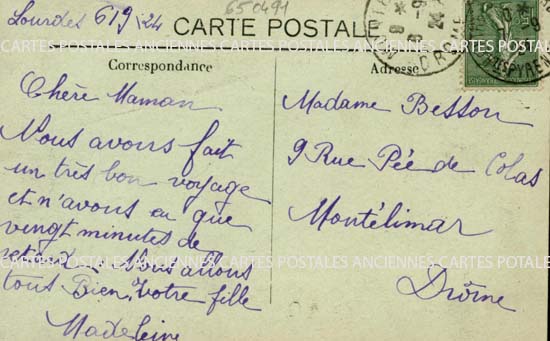 Lourdes 6 19/24
650491
CARTE POSTALE
Correspondance
Chère Maman
Nous avons fait
un très bon voyage
et n'avons eu que
vingt minutes de
retard. Nous allons
tous bien, Votre fille
Madeleine
Adresse
Madame Besson
9 Rue Pée de Colas
Montélimar
Drôme
CARTES POSTALES ANCIENNES CARTES POSTALES ANCIENNES CARTES POSTALES
DROME